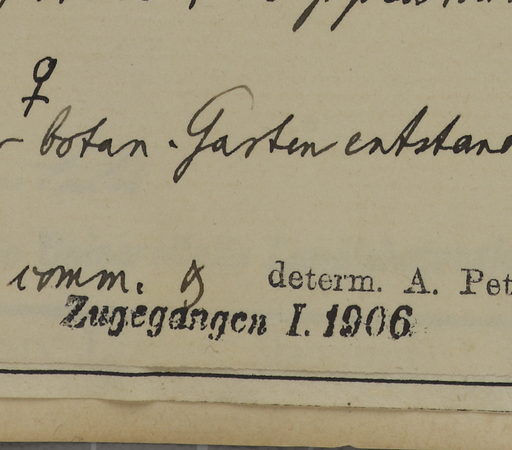 ♀
botan. Garten entstand
comm. & determ. A. Pet
Zugegangen I. 1906